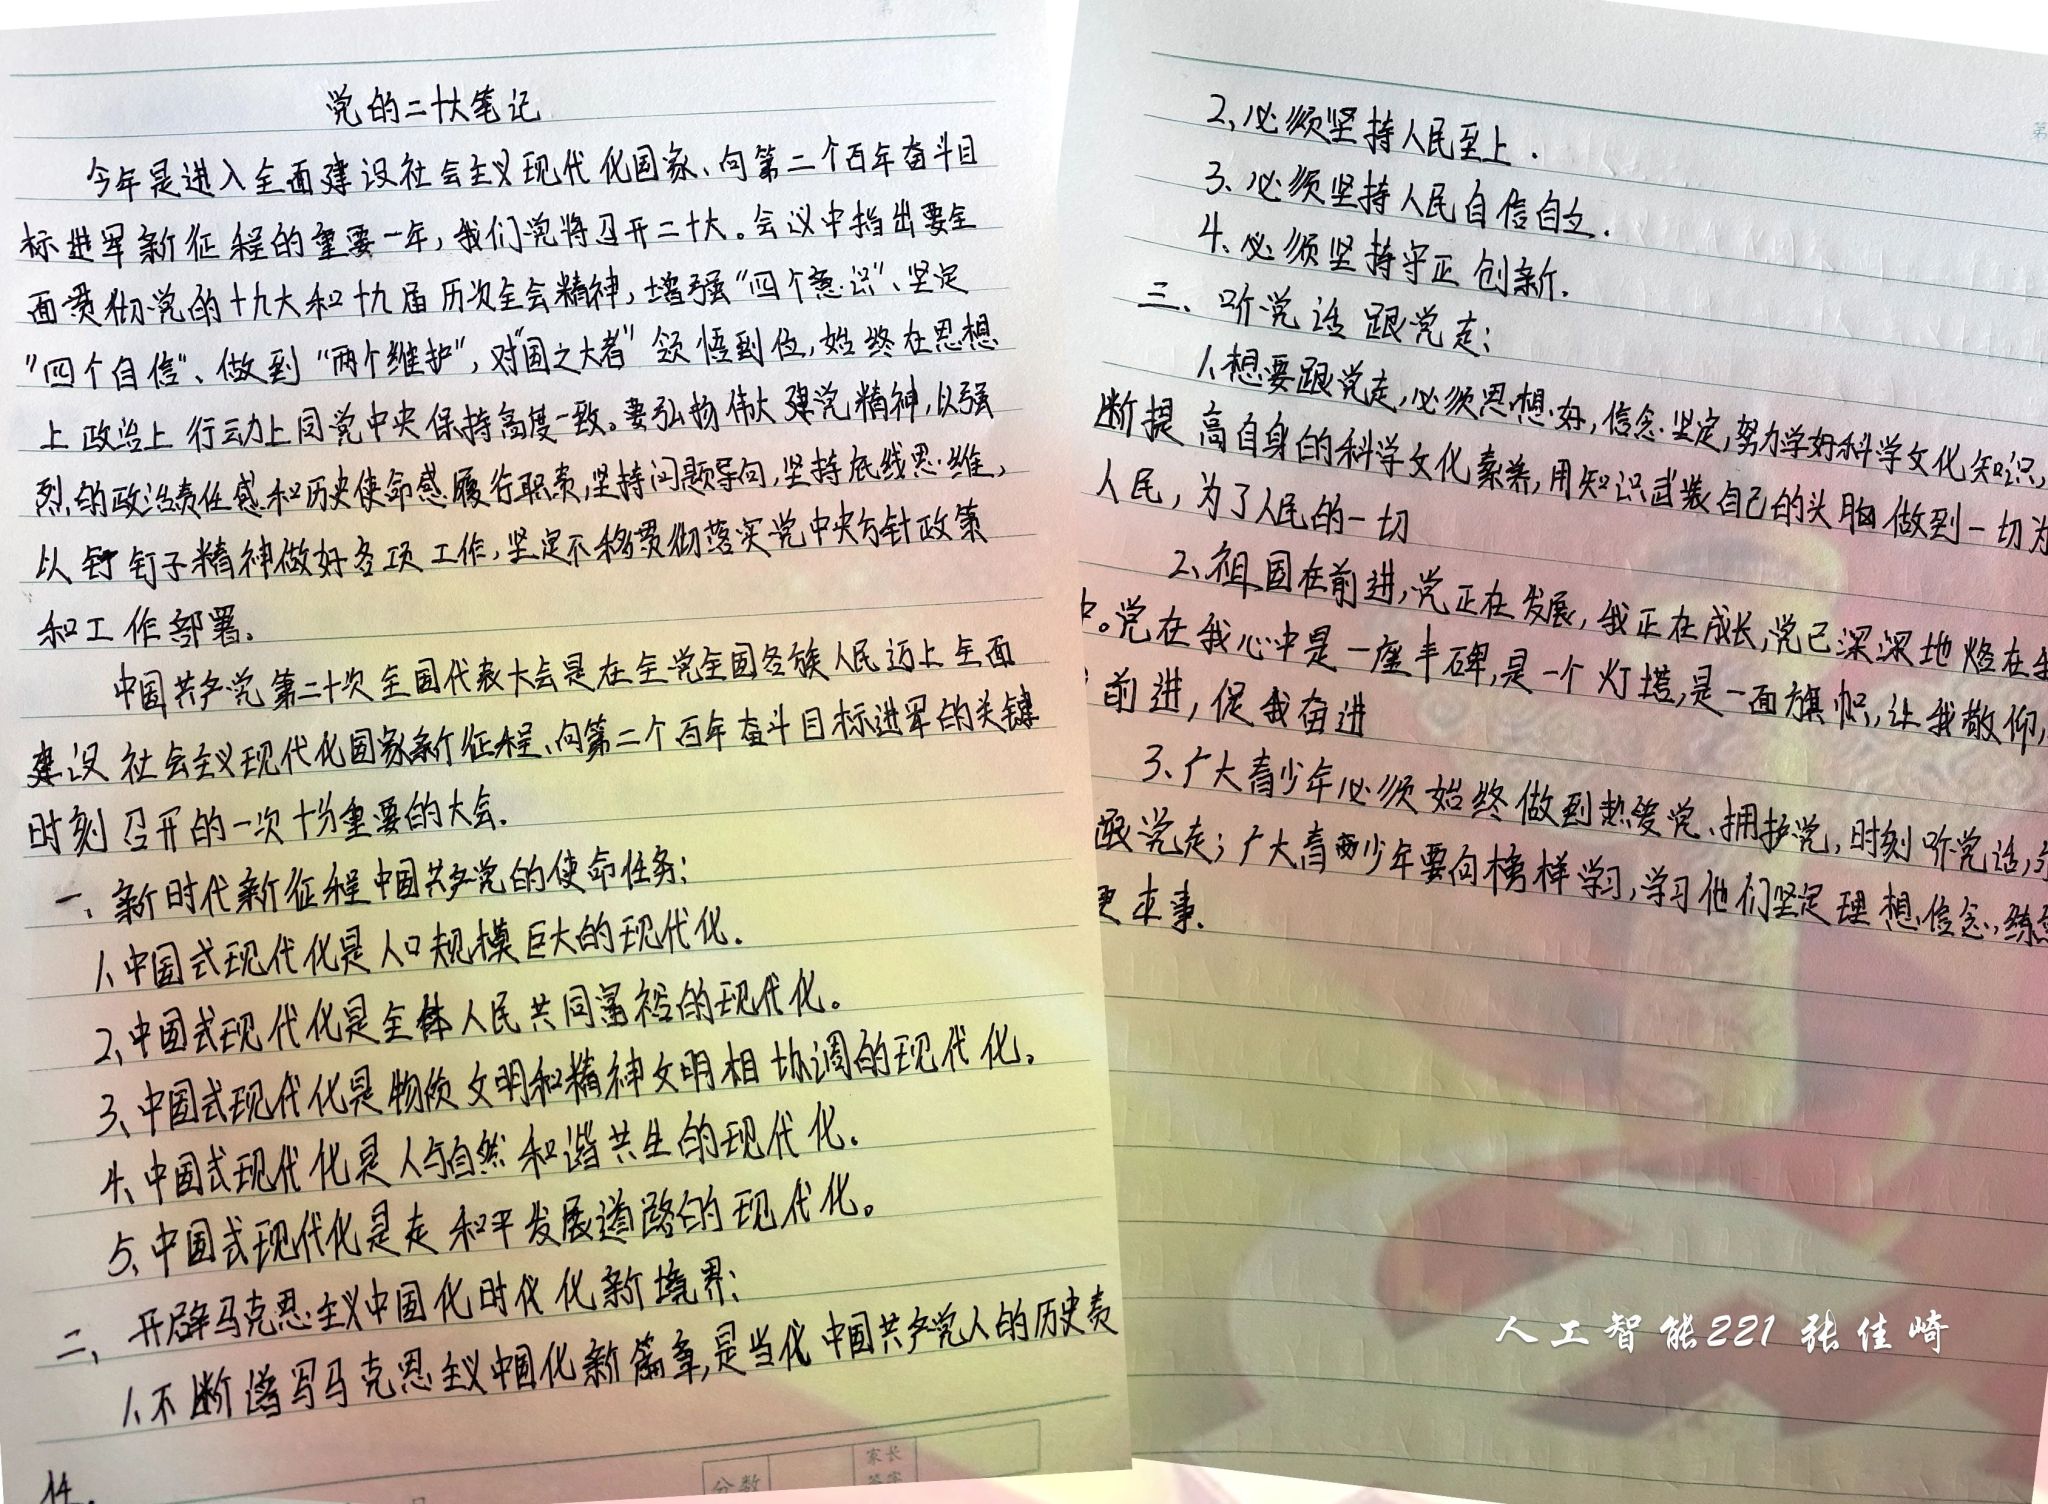 党的二十大笔记
今年是进入全面建设社会主义现代化国家、向第二个百年奋斗目
标进军新征程的重要一年,我们党将召开二十大。会议中指出要全
面贯彻党的十九大和十九届历次全会精神,增强"四个意识"、坚定
"四个自信"、做到"两个维护",对"国之大者"领悟到位,始终在思想
上政治上行动上同党中央保持高度一致。要弘扬伟大建党精神,以强
烈的政治责任感和历史使命感履行职责,坚持问题导向,坚持底线思维,
以钉钉子精神做好各项工作,坚定不移贯彻落实党中央方针政策
和工作部署.
中国共产党第二十次全国代表大会是在全党全国各族人民迈上全面
建设社会主义现代化国家新征程、向第二个百年奋斗目标进军的关键
时刻召开的一次十分重要的大会.
一、新时代新征程中国共产党的使命任务:
1、中国式现代化是人口规模巨大的现代化.
2、中国式现代化是全体人民共同富裕的现代化。
3、中国式现代化是物质文明和精神文明相协调的现代化。
4、中国式现代化是人与自然和谐共生的现代化.
5、中国式现代化是走和平发展道路的现代化。
二、开辟马克思主义中国化时代化新境界:
1、不断谱写马克思主义中国化新篇章,是当代中国共产党人的历史责
分数
家长
2、必须坚持人民至上.
3、必须坚持人民自信自立.
4、必须坚持守正创新.
三、听党话跟党走:
1、想要跟党走,必须思想好,信念坚定,努力学好科学文化知识,
断提高自身的科学文化素养,用知识武装自己的头脑做到一切为
人民,为了人民的一切
2、祖国在前进,党正在发展,我正在成长,党已深深地烙在我
中。党在我心中是一座丰碑,是一个灯塔,是一面旗帜,让我敬仰,
前进,促我奋进
3、广大青少年必须始终做到热爱党、拥护党,时刻听党话,
跟党走;广大青少年要向榜样学习,学习他们坚定理想、信念、练
更本事.
第
人工智能221 张佳崎